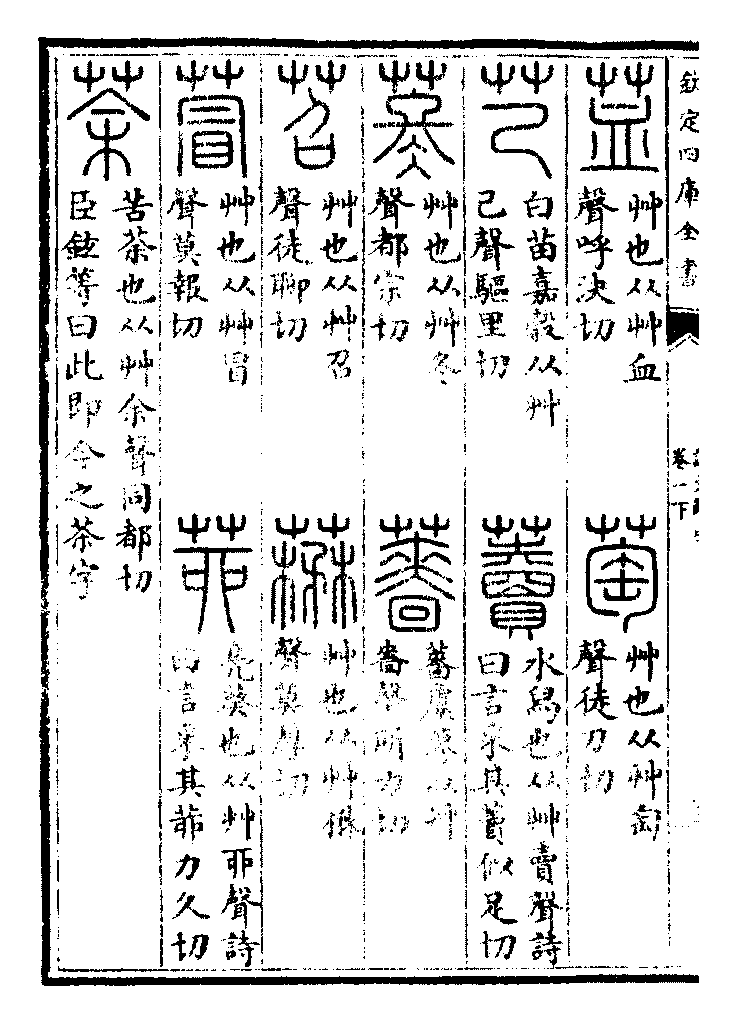 欽定四庫全書
卷一下
艸也从艸血
聲呼決切
萄
艸也从艸匋
聲徒刀切
芑
白苗嘉穀从艸
己聲驅里切
藚
水舄也从艸賣聲詩
曰言采其藚似足切
苳
艸也从艸冬
聲都宗切
薔
薔虞蓼从艸
嗇聲所力切
苕
艸也从艸召
聲徒聊切
艸也从艸楙
聲莫厚切
萺
艸也从艸冒
聲莫報切
茆
鳧葵也从艸丣聲詩
曰言采其茆力久切
荼
苦荼也从艸余聲同都切
臣鉉等曰此即今之茶字